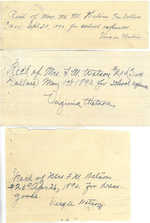 Recd of Mrs. M. M. Watson Ten Dollars
Sept 21, 1892 for school expenses
Virgie Watson
Recd of Mrs F. M. Watson
Dollars) May 1st 1892 for School expenses
Virginia Watson
Recd of Mrs F. M. Watson
April 26, 1890. for dress
goods.
Virgie Watson